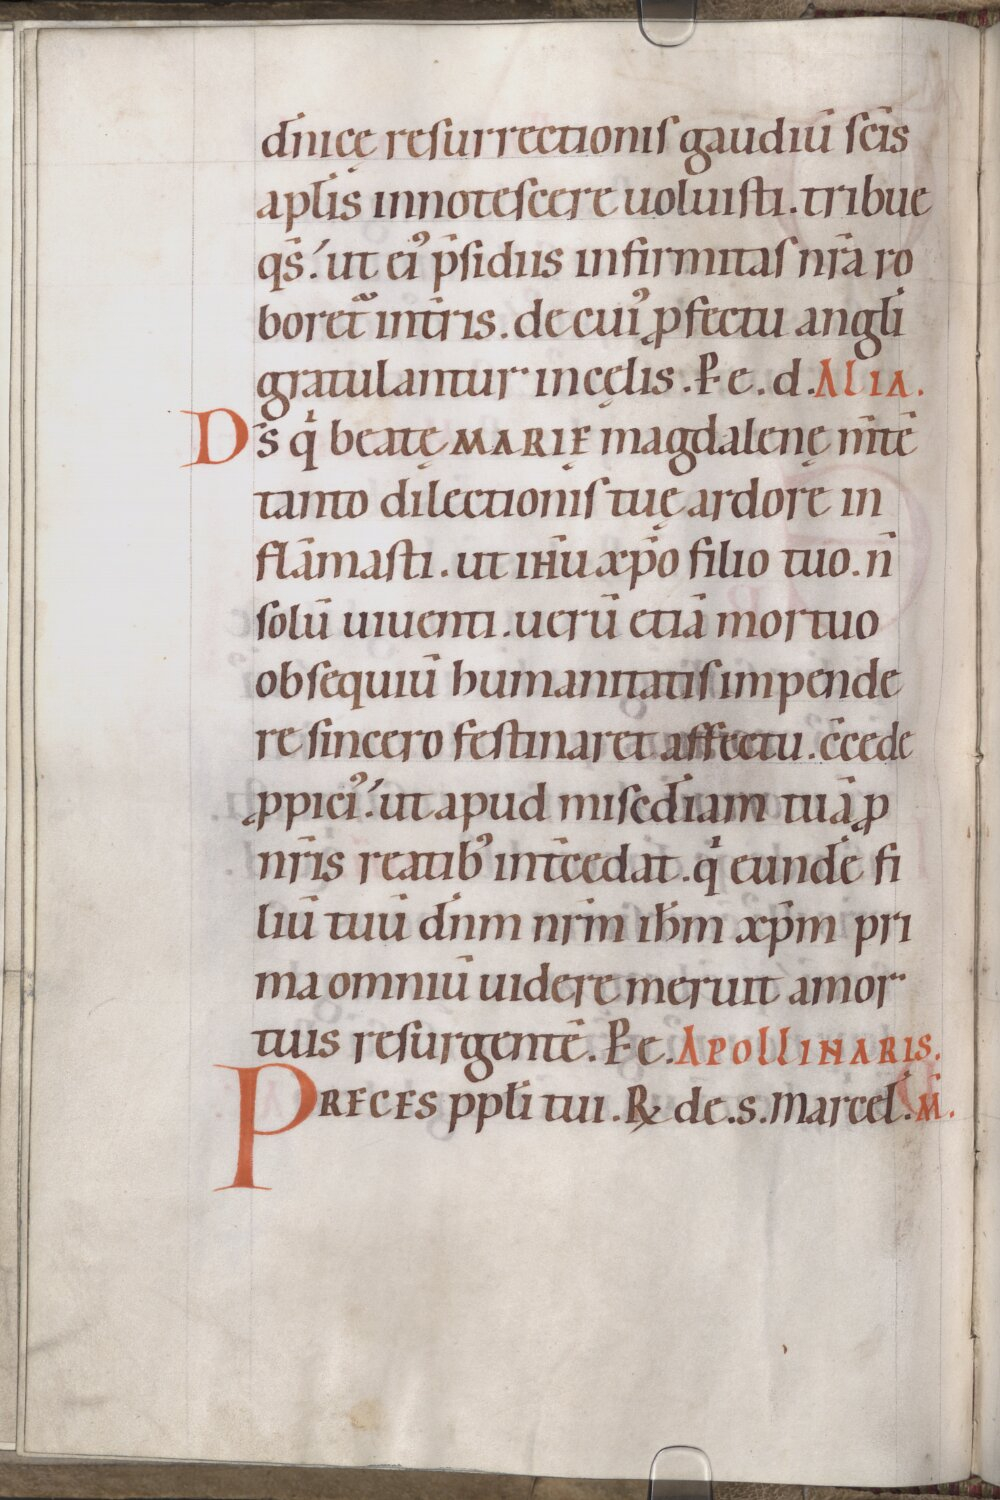 dn̄icę resurrectionis gaudiū sc̄is
aplīs innotescere uoluisti. tribue
qs̄. ut ei᾽ p̄sidiis infirmitas nrā ro
boret᷑ int̄ris. de cui᾽ ꝓfectu anglī
gratulantur in cęlis. P e. d. ALIA.
Ds̄ qͥ beatę MARIĘ magdalenę mn̄tē
tanto dilectionis tuę ardore in
flāmasti. ut ihū xp̄o filio tuo. n̄
solū uiuenti. uerū etiā mortuo
obsequiū humanitatis impende
re sincero festinaret affectu. c̄cede
ꝓpici᾽. ut apud misc̄diam tuā ꝓ
nrīs reatib᾽ int̄cedat. qͥ eundē fi
liū tuū dn̄m nrm̄ ihm̄ xp̄m pri
ma omniū uidere meruit a mor
tuis resurgentē. P e. APOLLINARIS.
PRECES pplī tui. ℞ de. s. Marcel. M̄.